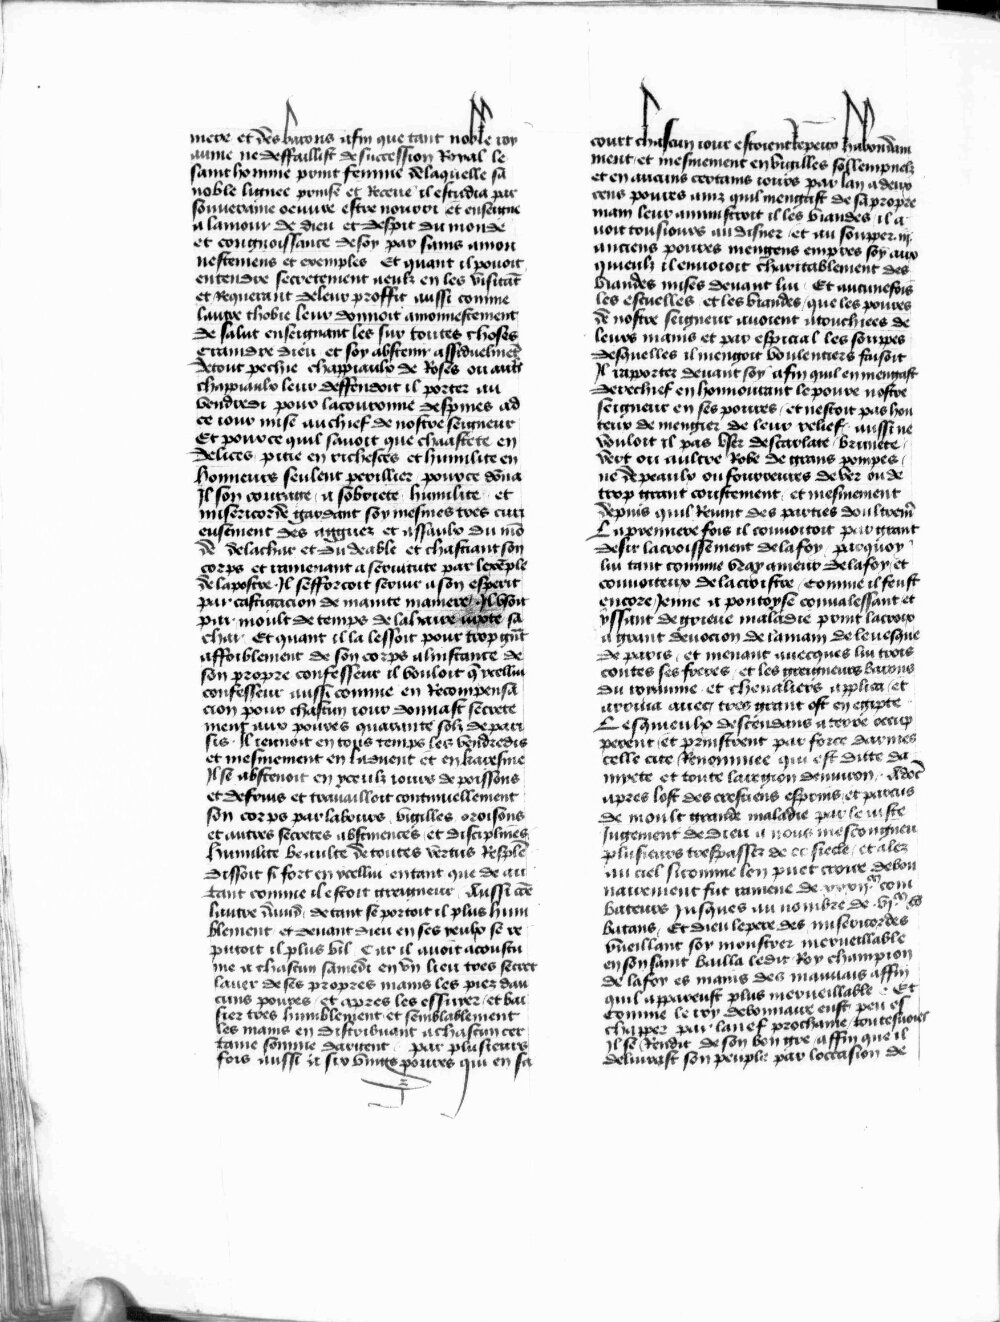 mere et des barons afin que tant noble roy
aume ne deffaillist de succession Royal le
saint homme print femme de laquelle sa
noble lignee prinse et Receue il estudia par
souveraine oeuvre estre nourri et enseigne
a lamour de dieu et despit du monde
et congnoissance de soy par sains amon
nestemens et exemples Et quant il povoit
entendre secretement a eulx en les visitat
et Requerant de leur proffit aussi comme
lautre thobie leur donnoit amonnestement
de salut enseignant les sur toutes choses
craindre dieu et soy abstenir assiduelmet
de tout pechie chappiaulx de Roses ou autres
chappiaulx leur deffendoit il porter au
vendredi pour la couronne despines ad
ce iour mise au chief de nostre seigneur
Et pource quil savoit que chastete en
delices pitie en richesces et humilite en
honneurs seulent perillier pource dona
Il son courage a sobriete humilite et
misericorde gardant soy mesmes tres curi
eusement des agguez et assaulx du mo
de de la char et du deable et chastiant son
corps et ramenant a servitute par lexeple
de lapostre Il sefforcoit servir a son esperit
par castigacion de mainte maniere Il usoit
par moult de temps de la haire sa
char Et quant il la lessoit pour trop gnt
affoiblement de son corps a linstance de
son propre confesseur il vouloit q ycellui
confesseur aussi comme en Recompensa
cion pour chascun iour donnast secrete
ment aux povres quarante solz de pari
sis Il ieunoit en tous temps les vendredis
et mesmement en ladvent et en karesme
Il se abstenoit en yceulx iours de poissons
et de fruis et travailloit continuellement
son corps par labours vigilles oroisons
et autres secretes abstinences et disciplines
humilite beaulte de toutes vertus Resple
dissoit si fort en ycellui en tant que de au
tant comme il estoit greigneur Aussi coe
lautre david de tant se portoit il plus hum
blement et devant dieu en ses yeulx se re
putoit il plus vil Car il avoit acoustu
me a chascun samedi en un lieu tres secret
laver de ses propres mains les piez dau
cuns povres et apres les essuyer et bai
sier tres humblement et semblablement
les mains en distribuant a chascun cer
taine somme dargent par plusieurs
fois aussi a six vings povres qui en sa
court chascun iour estoient repeuz habondam
ment et mesmement en vigilles sollempnelz
et en aucuns certains iours par lan a deux
cens povres ainz quil mengast de sa propre
main leur aministroit il les viandes il a
voit tousiours au disner et au soupper iii
anciens povres mengens empres soy aux
quieulx il envoioit charitablement des
viandes mises devant lui Et aucunefois
les escuelles et les viandes que les povres
de nostre seigneur avoient atouchiees de
leurs mains et par especial les souppes
desquelles il mengoit voulentiers faisoit
Il raporter devant soy afin quil en mengast
de rechief en honnourant le povre nostre
seigneur en ses povres et nestoit pas hon
teux de mengier de leur relief aussi ne
vouloit il pas user descarlate brunete
vert ou aultre Robe de grans pompes
ne de peaulx ou fourreures de ver ou de
trop grant coustement et mesmement
depuis quil Revint des parties doultrem
La premiere fois il convoitoit par grant
desir lacroissement de la foy parquoy
lui tant comme vray ameur de la foy et
convoiteux de lacroistre comme il feust
encore Jenne a pontoyse convalessant et
yssant de grieve maladie print la croix
a grant devocion de la main de levesque
de paris et menant avecques lui trois
contes ses freres et les greigneurs barons
du royaume et chevaliers applica et
arriva avec tres grant ost en egipte
Lesquieulx descendans a terre occup
perent et prinstrent par force darmes
celle cite Renommee qui est ditte da
miete et toute la region denviron Adoc
apres lost des crestiens espris et parcus
de moult grande maladie par le iuste
Jugement de dieu a nous mescongneu
plusieurs trespasser de ce siecle et alez
au ciel si comme len puet croire debon
nairement fut ramene de com
bateurs Jusques au nombre de
batans Et dieu le pere des misericordes
vueillant soy monstrer merveillable
en son saint bailla ledit Roy champion
de la foy es mains des mauvais affin
quil apparust plus merveillable Et
comme le roy debonnaire eust peu es
chapper par la nef prochaine toutesvoies
Il se Rendit de son bon gre affin que il
delivrast son peuple par loccasion de